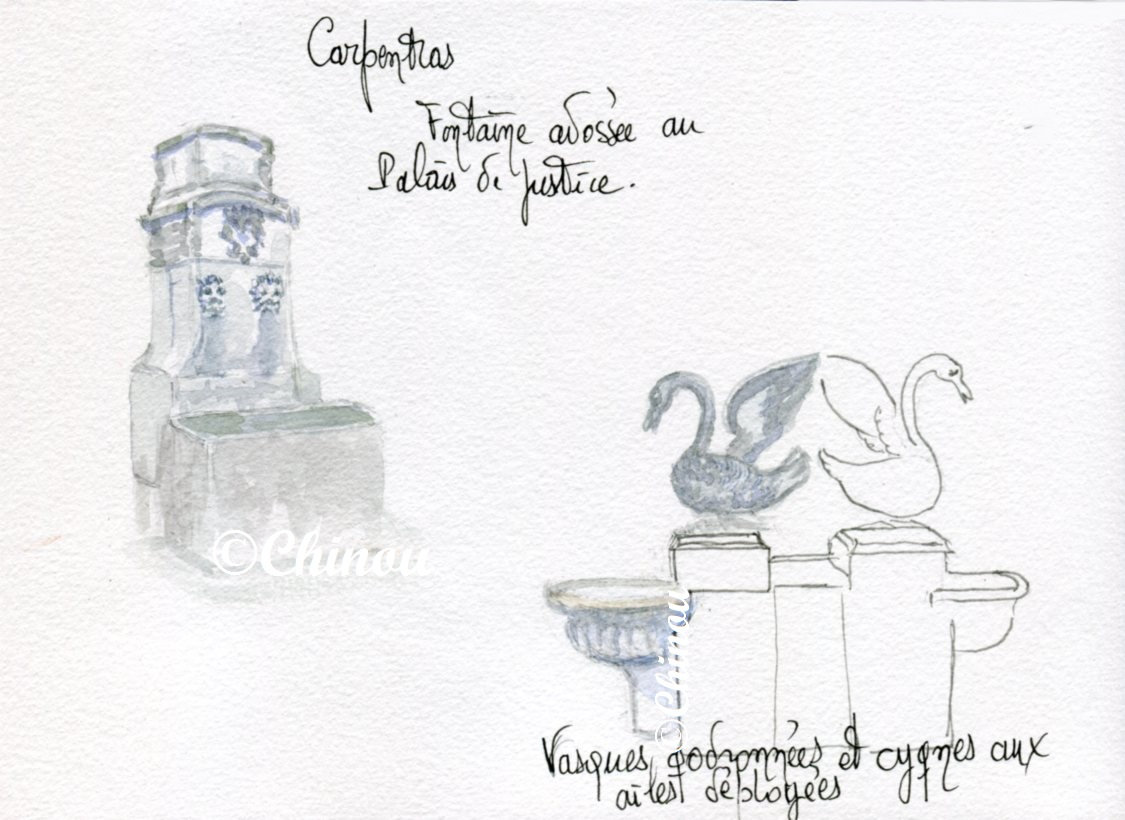 Carpentras
Fontaine adossée au
Palais de Justice.
©Chinou
©Chinou
Vasques godronnées et cygnes aux
ailes déployées